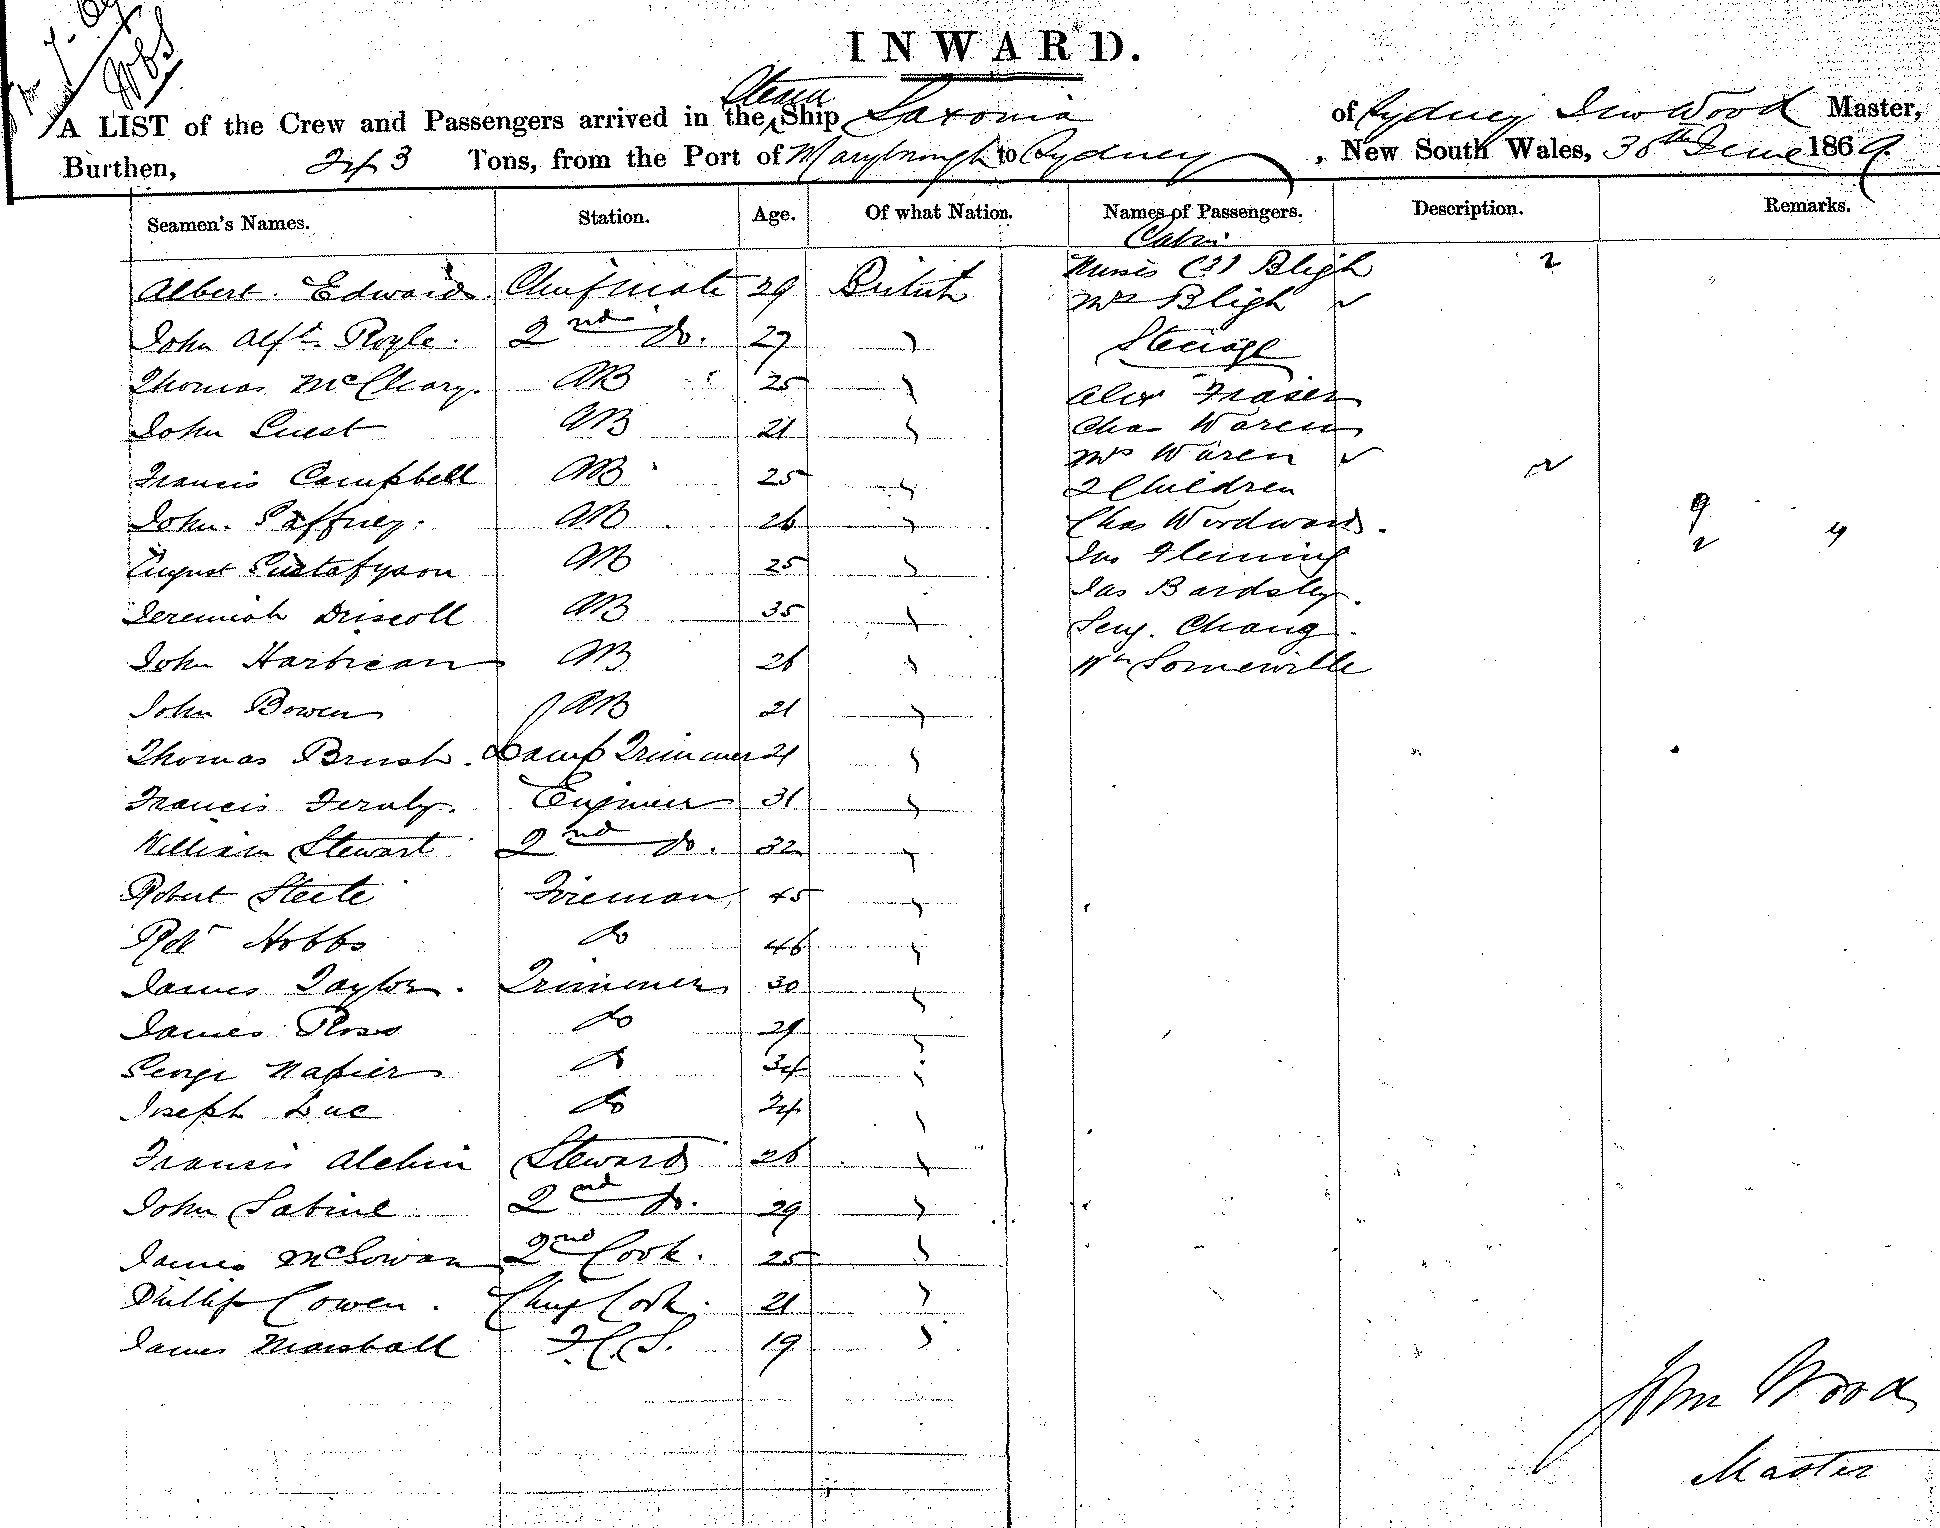 INWARD.
A LIST of the Crew and Passengers arrived in the Steam Ship Saxonia of Sydney Jno Wood Master,
Burthen, 343 Tons, from the Port of Maryborough to Sydney, New South Wales, 30th June 1869
Seamen's Names. Station. Age. Of what Nation. Names of Passengers. Description. Remarks.
Albert Edwards Chief mate 29 British
John Alfd. Royle. 2nd do. 27 "
Thomas McCleary. AB 25 "
John Guest AB 21 "
Francis Campbell AB 25 "
John Gaffney. AB 26 "
August Gustafsson AB 25 "
Jeremiah Driscoll AB 35 "
John Harbican AB 26 "
John Bowen AB 21 "
Thomas Brush. Lamp Trimmer 21 "
Francis Fernly. Engineer 31 "
William Stewart 2nd do. 32 "
Robert Steele Fireman 45 "
Robt Hobbs do 46 "
James Taylor. Trimmer 30 "
James Ross do 29 "
George Napier do 34 "
Joseph Luc do 24 "
Francis Alchin Steward 26 "
John Sabine 2nd do. 29 "
James McGowan 2nd Cook. 25 "
Phillip Cowen. Chief Cook. 21 "
James Marshall F.C.S. 19 "
Cabin
Misses (3) Bligh 2
Mrs Bligh
Steerage
Alex Fraser
Chas Waren
Mrs Waren
2 Children
Chas Woodward.
Jas Fleming
Jas Bardsley.
Seng. Chang.
Wm Somerville
9
2 4
John Wood
Master